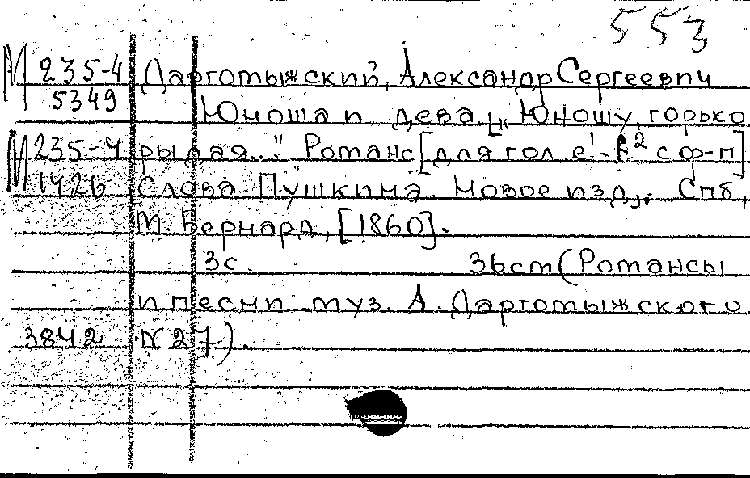 553
М 235-4 Даргомыжский, Александр Сергеевич
5349 Юноша и дева. [„Юношу, горько
М 235-4 рыдая..." Романс [для гол. e¹-f² с ф-п]
1426 Слова Пушкина. Новое изд., Спб,
М. Бернард, [1860].
3с. 36см (Романсы
и песни муз. А. Даргомыжского.
3842 N 27).